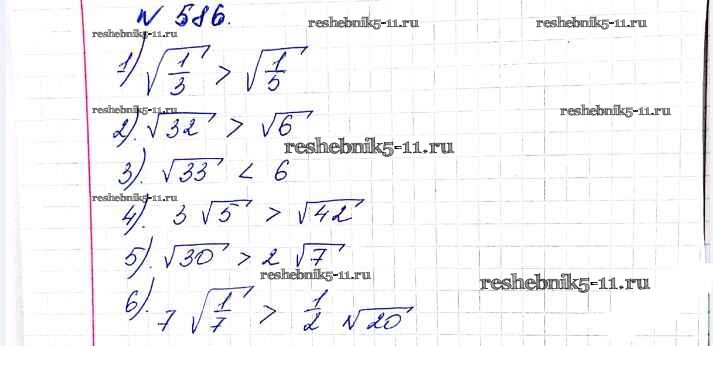 № 586.
reshebnik5-11.ru
reshebnik5-11.ru
reshebnik5-11.ru
1) √(1/3) > √(1/5)
reshebnik5-11.ru
reshebnik5-11.ru
2). √32 > √6
reshebnik5-11.ru
3). √33 < 6
reshebnik5-11.ru
4). 3 √5 > √42
5). √30 > 2 √7
reshebnik5-11.ru
reshebnik5-11.ru
6). 7 √(1/7) > 1/2 √20